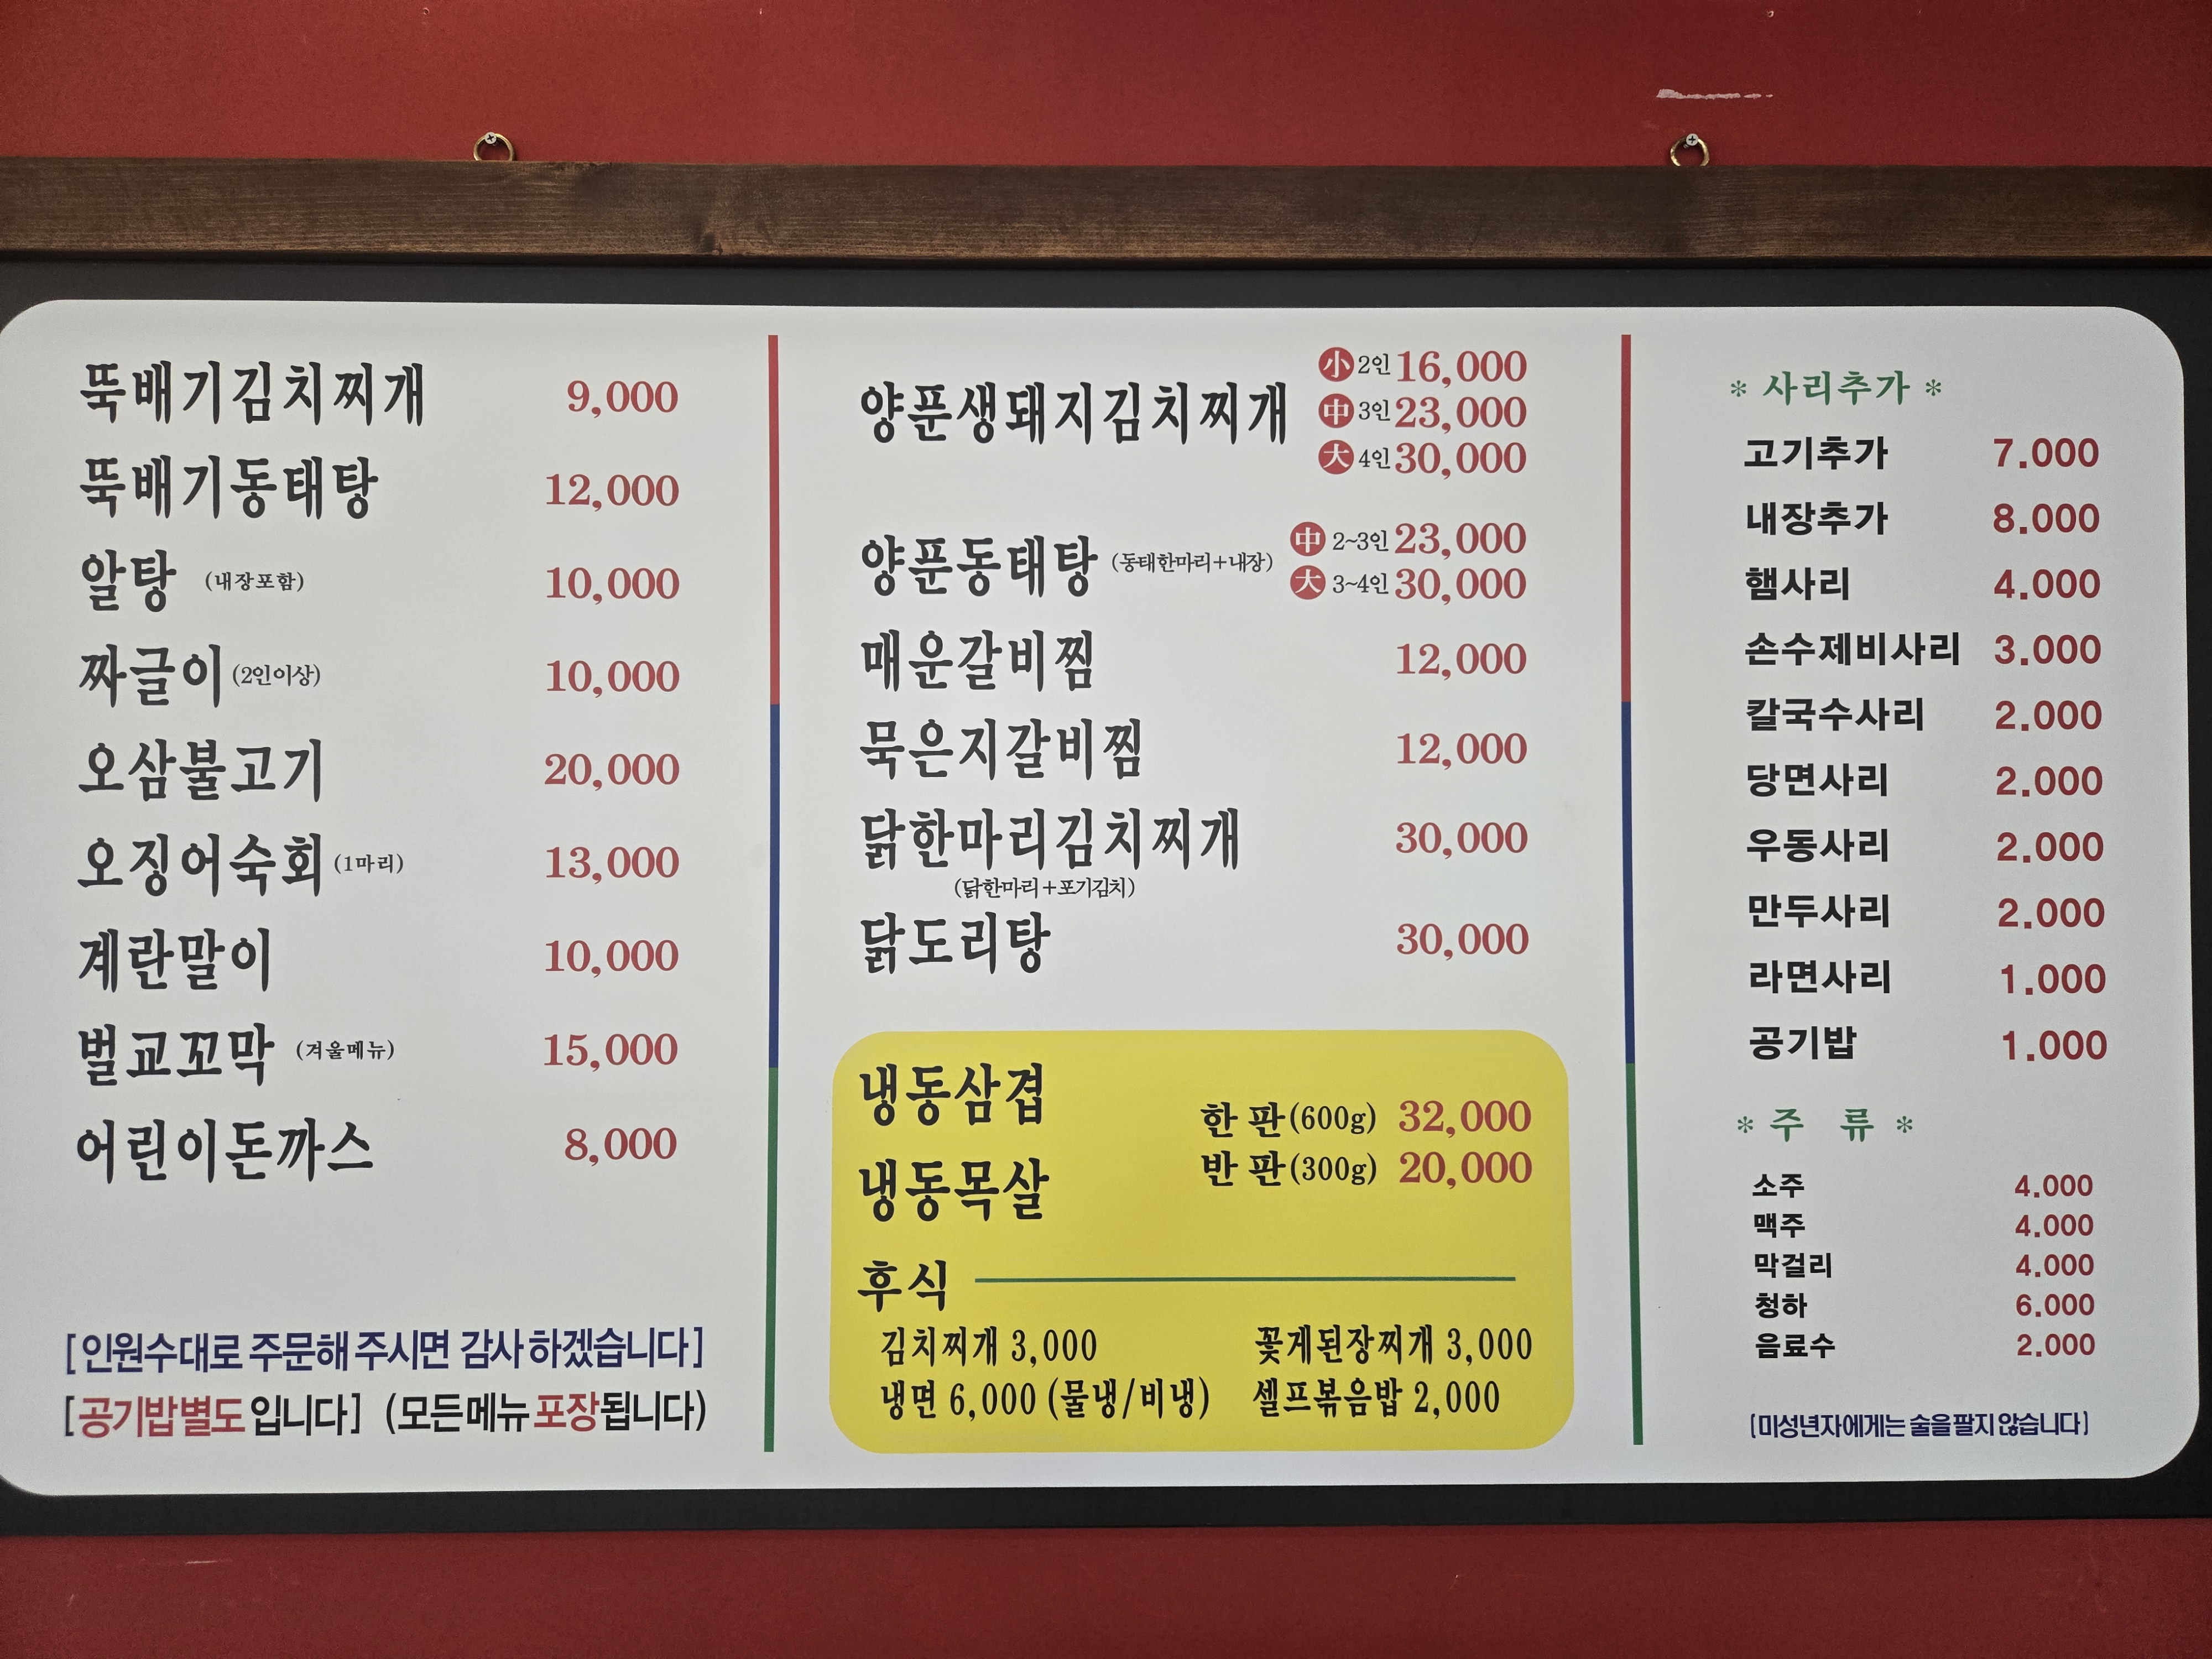 뚝배기김치찌개 9,000
뚝배기동태탕 12,000
알탕 (내장포함) 10,000
짜글이 (2인이상) 10,000
오삼불고기 20,000
오징어숙회 (1마리) 13,000
계란말이 10,000
벌교꼬막 (겨울메뉴) 15,000
어린이돈까스 8,000
[인원수대로 주문해 주시면 감사 하겠습니다]
[공기밥별도 입니다] (모든메뉴 포장됩니다)
양푼생돼지김치찌개
小 2인 16,000
中 3인 23,000
大 4인 30,000
양푼동태탕 (동태한마리+내장)
中 2~3인 23,000
大 3~4인 30,000
매운갈비찜 12,000
묵은지갈비찜 12,000
닭한마리김치찌개 30,000
(닭한마리+포기김치)
닭도리탕 30,000
냉동삼겹
냉동목살
한 판(600g) 32,000
반 판(300g) 20,000
후식
김치찌개 3,000 꽃게된장찌개 3,000
냉면 6,000 (물냉/비냉) 셀프볶음밥 2,000
* 사리추가 *
고기추가 7.000
내장추가 8.000
햄사리 4.000
손수제비사리 3.000
칼국수사리 2.000
당면사리 2.000
우동사리 2.000
만두사리 2.000
라면사리 1.000
공기밥 1.000
* 주 류 *
소주 4.000
맥주 4.000
막걸리 4.000
청하 6.000
음료수 2.000
[미성년자에게는 술을 팔지 않습니다]